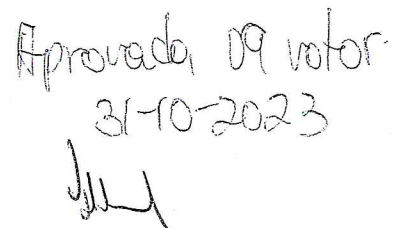 Aprovada 09 votos
31-10-2023